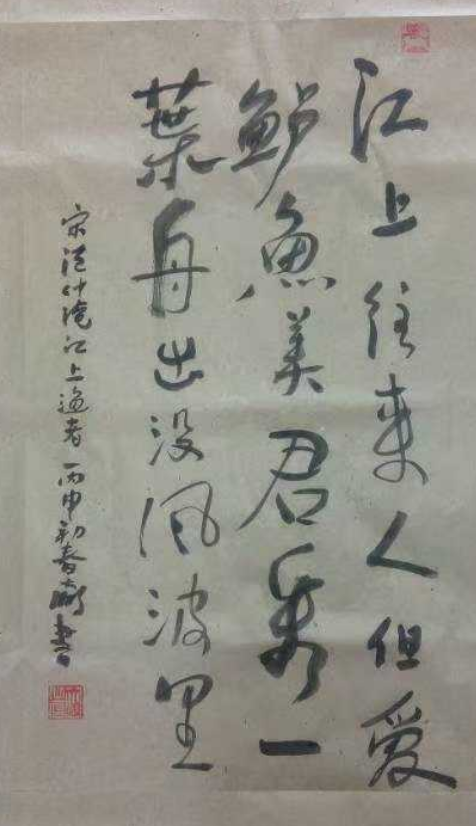 江上往来人但爱
鲈鱼美君看一
葉舟出没风波里
宋范仲淹江上渔者 丙申初春 书